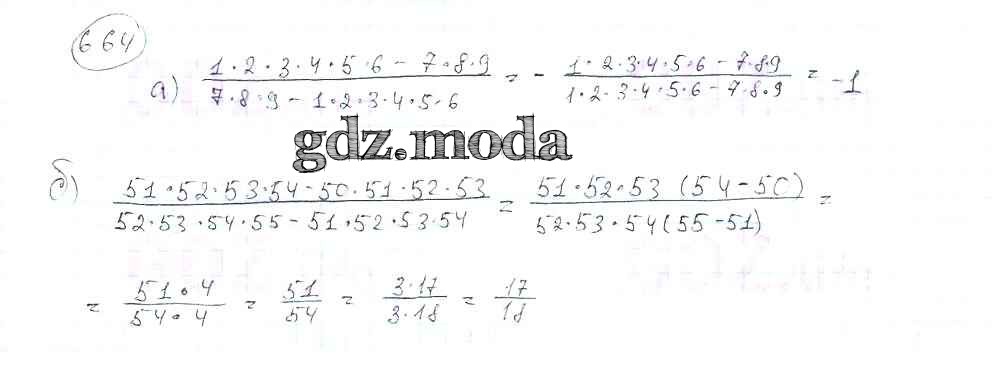 664
а) 1·2·3·4·5·6 - 7·8·9 / 7·8·9 - 1·2·3·4·5·6 = - 1·2·3·4·5·6 - 7·8·9 / 1·2·3·4·5·6 - 7·8·9 = -1
gdz.moda
б) 51·52·53·54 - 50·51·52·53 / 52·53·54·55 - 51·52·53·54 = 51·52·53 (54-50) / 52·53·54 (55-51) =
= 51·4 / 54·4 = 51 / 54 = 3·17 / 3·18 = 17 / 18